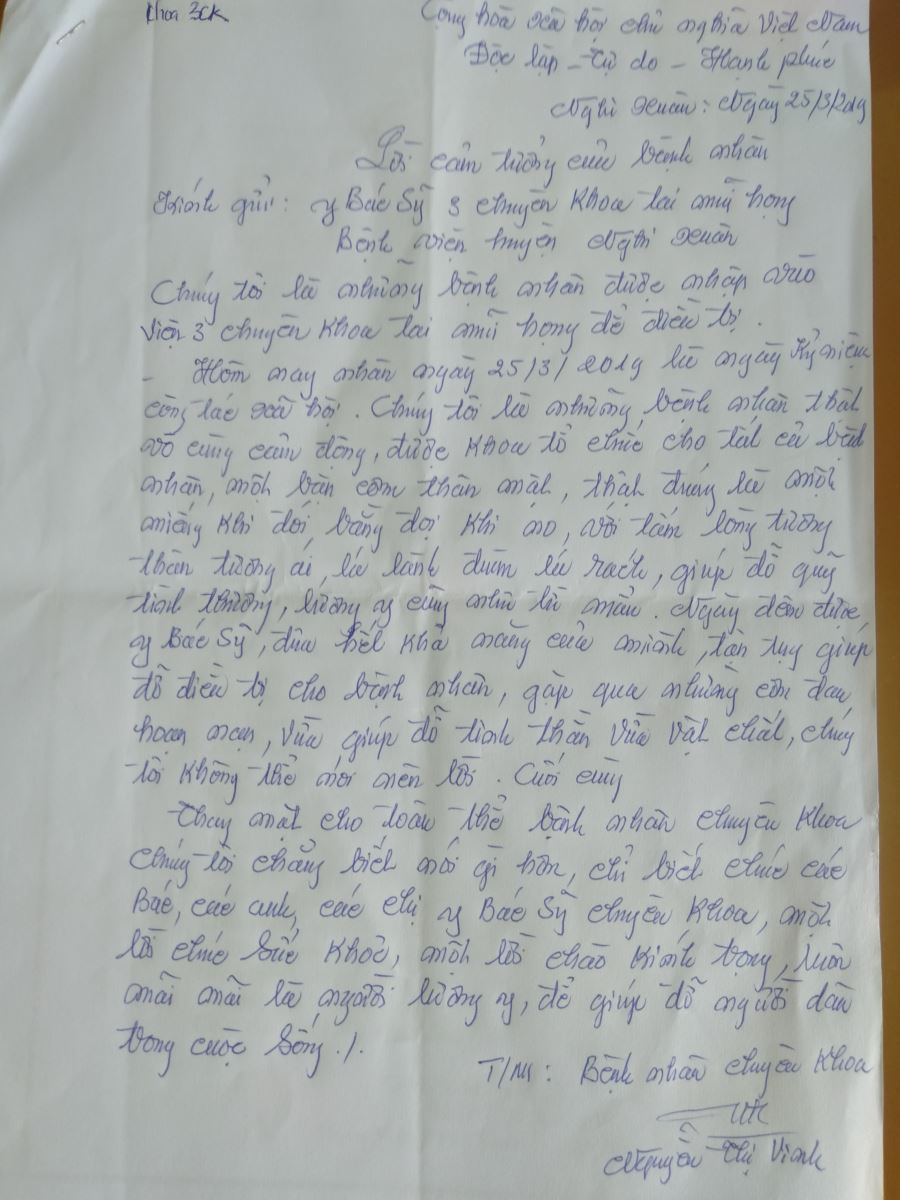 Khoa 3CK
Cộng hoà xã hội chủ nghĩa Việt Nam
Độc lập - Tự do - Hạnh phúc
Nghi Xuân: Ngày 25/3/2019
Lời cảm tưởng của bệnh nhân
Kính gửi: y Bác Sỹ 3 chuyên Khoa tai mũi họng
Bệnh viện huyện Nghi Xuân
Chúng tôi là những bệnh nhân được nhập vào
viện 3 chuyên Khoa tai mũi họng để điều trị.
- Hôm nay nhân ngày 25/3/2019 là ngày Kỷ niệm
công tác xã hội. Chúng tôi là những bệnh nhân thật
vô cùng cảm động, được Khoa tổ chức cho tất cả bệnh
nhân, một bữa cơm thân mật, thật đúng là một
miếng Khi đói, bằng đọi Khi no, với tấm lòng tương
thân tương ái, lá lành đùm lá rách, giúp đỡ quý
tình thương, lương y cũng như từ mẫu. Ngày đêm được,
y Bác Sỹ, đưa hết Khả năng của mình, tận tụy giúp
đỡ điều trị cho bệnh nhân, gặp qua những cơn đau,
hoạn nạn, vừa giúp đỡ tinh thần vừa vật chất, chúng
tôi Không thể nói nên lời. Cuối cùng
Thay mặt cho toàn thể bệnh nhân chuyên Khoa
chúng tôi chẳng biết nói gì hơn, chỉ biết chúc các
Bác, các anh, các chị y Bác Sỹ chuyên Khoa, một
lời chúc Sức Khoẻ, một lời chào Kính trọng, luôn
mãi mãi là người lương y, để giúp đỡ người dân
trong cuộc Sống./.
T/M: Bệnh nhân chuyên Khoa
Nguyễn Thị Vinh